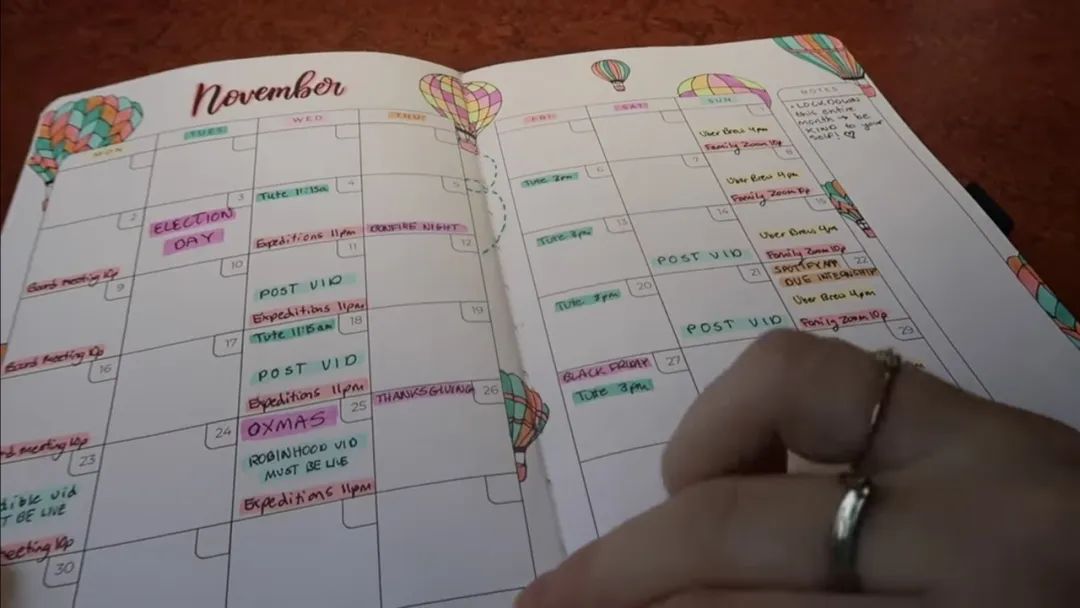 November
MON
TUES
WED
THU
FRI
SAT
SUN
NOTES
• LOCKDOWN
this entire
month → be
KIND to your
self! ♡
Uber Brew 4pm
Family Zoom 10p
2
Board meeting 10p
3
ELECTION
DAY
4
Tute 11:15a
Expeditions 11pm
5
BONFIRE NIGHT
6
Tute 3pm
7
8
Uber Brew 4pm
Family Zoom 10p
9
Board meeting 10p
10
11
POST VID
Expeditions 11pm
12
13
Tute 3pm
14
POST VID
15
Uber Brew 4pm
Family Zoom 10p
16
rd meeting 10p
17
18
Tute 11:15am
POST VID
Expeditions 11pm
19
20
Tute 3pm
21
POST VID
22
SPOTIFY APP
DUE INTERNSHIP
Uber Brew 4pm
Family Zoom 10p
23
dible vid
T BE LIVE
meeting 10p
24
25
OXMAS
ROBINHOOD VID
MUST BE LIVE
Expeditions 11pm
26
THANKSGIVING
27
BLACK FRIDAY
Tute 3pm
29
30